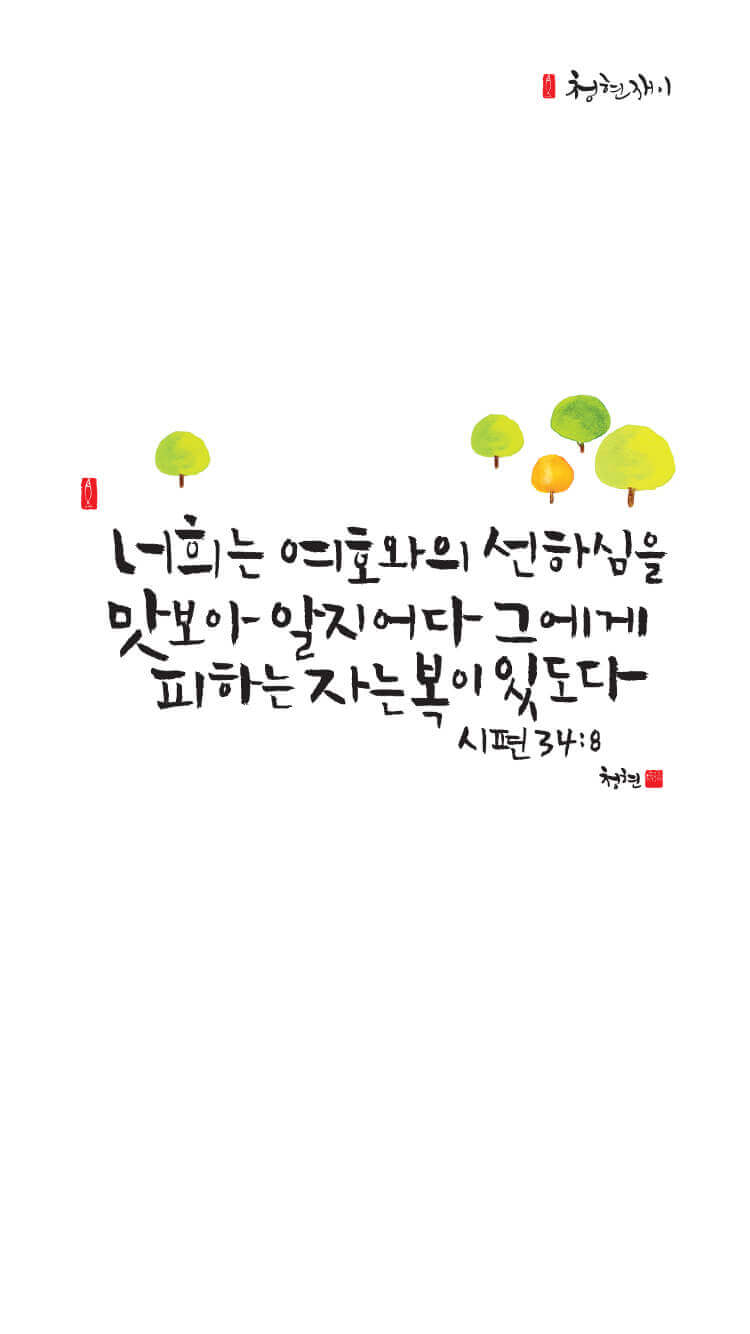 청현재이
너희는 여호와의 선하심을
맛보아 알지어다 그에게
피하는 자는 복이 있도다
시편 34:8
청현